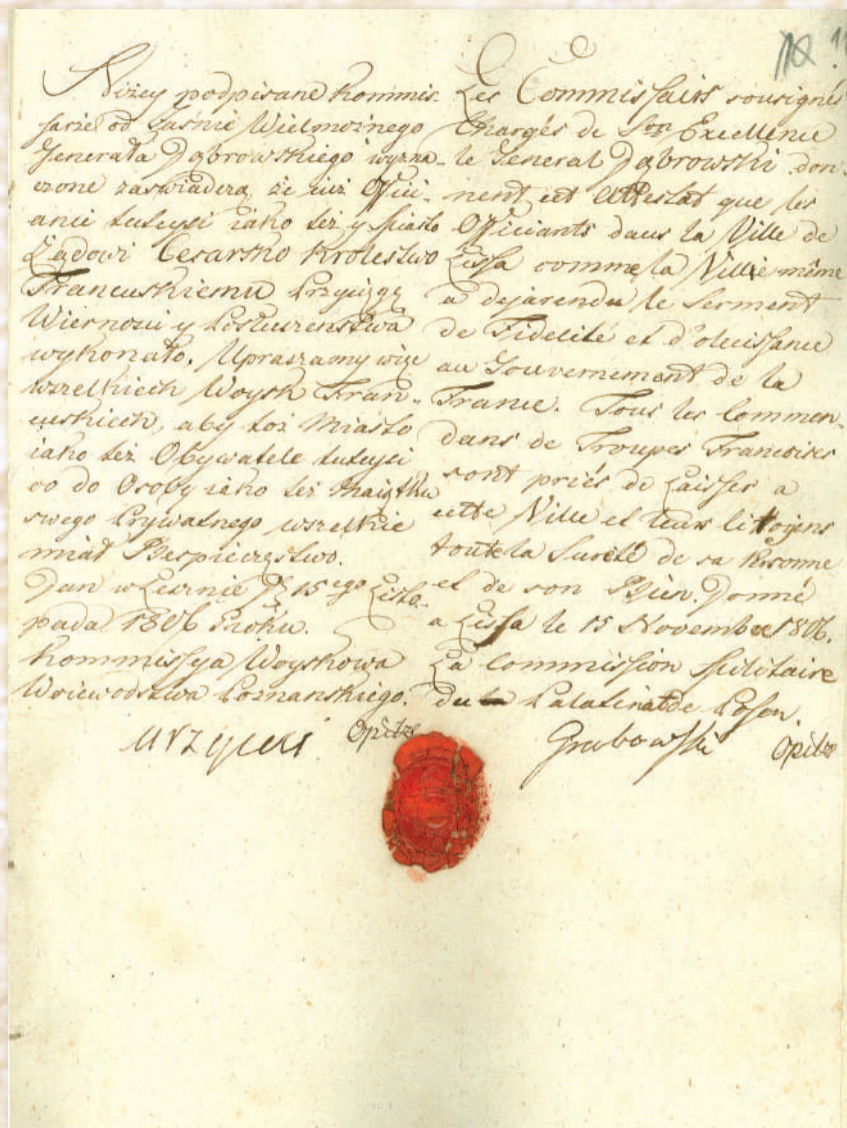 Niżey podpisane Kommis-
sarze od Jaśnie Wielmożnego
Jenerała Dąbrowskiego wyzna-
czone zaświadczą, że iuż Offici-
anci tuteysi iako też y Miasto
Rządowi Cesarsko Krolestwo
Francuskiemu Przysięgę
Wiernosci y Posłuszenstwa
wykonało. Upraszamy więc
wszelkiech Woysk Fran-
cuskiech, aby toż Miasto
iako też Obywatele tuteysi
co do Osoby iako też Maiątku
swego Prywatnego wszelkie
miał Bespieczęstwo.
Dan w Lesznie d. 15ego Listo-
pada 1806 Roku.
Kommissya Woyskowa
Woiewodztwa Poznanskiego.
Opitz
Les Commissairs sousignés
Chargés de Son Excellence
le General Dąbrowski don-
nent cet Attestat que les
Officiants dans la Ville de
Lissa comme la Ville même
a dejarendu le Serment
de Fidelité et d'oleissance
au Gouvernement de la
France. Tous les Commen-
dans de Troupes Francoises
sont priés de Laisser a
cette Ville et leurs Citoyens
toute la Sureté de sa Personne
et de son Bien. Donné
a Lissa le 15 November 1806.
La Commission Militaire
du Palatinat de Posen.
Grabowski Opitz